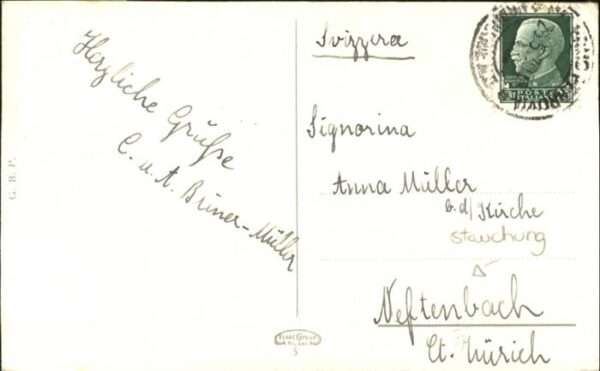 Herzliche Grüße
C. u. A. Briner-Müller
G. B. P.
Svizzera
POSTE
ITALIANE
Signorina
Anna Müller
b. d/ Kirche
Stauchung
Neftenbach
Ct. Zürich